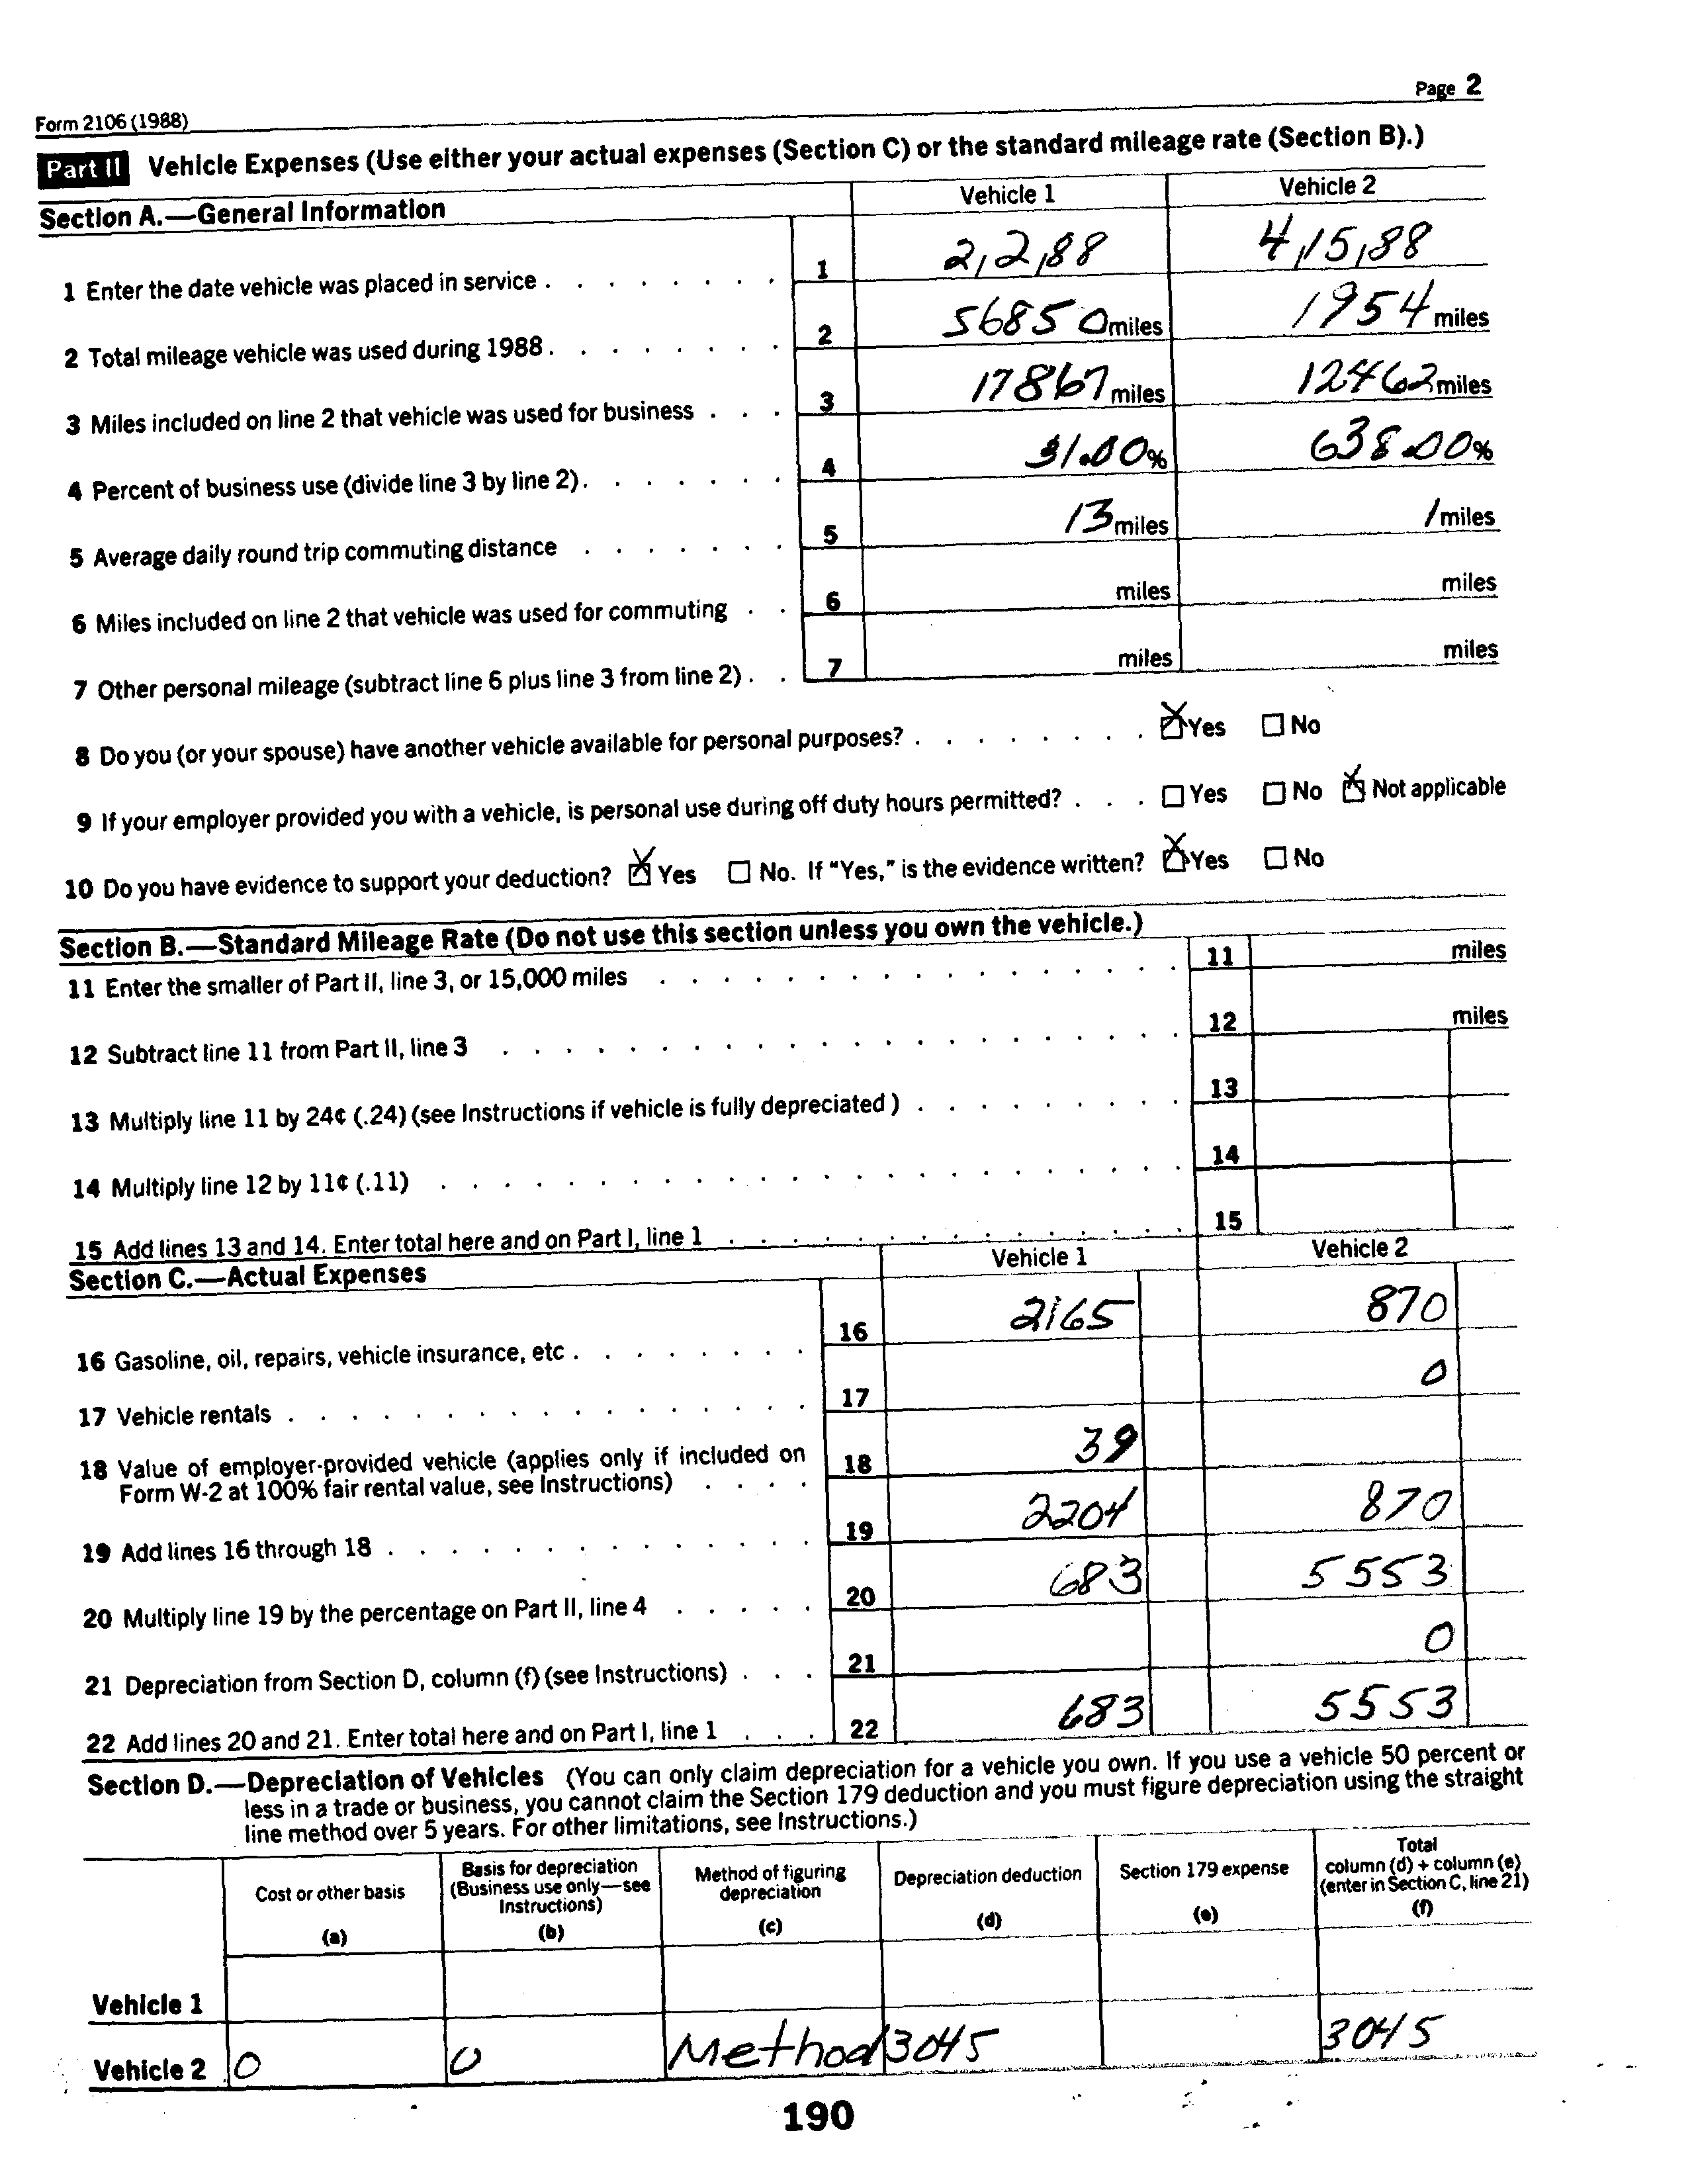 Page 2
Form 2106 (1988)
Part II Vehicle Expenses (Use either your actual expenses (Section C) or the standard mileage rate (Section B).)
Section A.—General Information Vehicle 1 Vehicle 2
1 Enter the date vehicle was placed in service . . . . . . . . 1 2,2,88 4,15,88
2 Total mileage vehicle was used during 1988 . . . . . . . . 2 56850 miles 1954 miles
3 Miles included on line 2 that vehicle was used for business . . . 3 17867 miles 12462 miles
4 Percent of business use (divide line 3 by line 2) . . . . . . . 4 31.00% 638.00%
5 Average daily round trip commuting distance . . . . . . . 5 13 miles 1 miles
6 Miles included on line 2 that vehicle was used for commuting . . 6 miles miles
7 Other personal mileage (subtract line 6 plus line 3 from line 2) . . 7 miles miles
8 Do you (or your spouse) have another vehicle available for personal purposes? . . . . . . . . ☒ Yes ☐ No
9 If your employer provided you with a vehicle, is personal use during off duty hours permitted? . . . ☐ Yes ☐ No ☒ Not applicable
10 Do you have evidence to support your deduction? ☒ Yes ☐ No. If "Yes," is the evidence written? ☒ Yes ☐ No
Section B.—Standard Mileage Rate (Do not use this section unless you own the vehicle.)
11 Enter the smaller of Part II, line 3, or 15,000 miles . . . . . . . . . . . . . . . . . 11 miles
12 Subtract line 11 from Part II, line 3 . . . . . . . . . . . . . . . . . . . . . . 12 miles
13 Multiply line 11 by 24¢ (.24) (see Instructions if vehicle is fully depreciated) . . . . . . . . . 13
14 Multiply line 12 by 11¢ (.11) . . . . . . . . . . . . . . . . . . . . . . . . 14
15 Add lines 13 and 14. Enter total here and on Part I, line 1 . . . . . . . . . . . . . . . 15
Section C.—Actual Expenses Vehicle 1 Vehicle 2
16 Gasoline, oil, repairs, vehicle insurance, etc . . . . . . . . 16 2165 870
17 Vehicle rentals . . . . . . . . . . . . . . . . . 17 0
18 Value of employer-provided vehicle (applies only if included on
Form W-2 at 100% fair rental value, see Instructions) . . . . 18 39
19 Add lines 16 through 18 . . . . . . . . . . . . . . 19 2204 870
20 Multiply line 19 by the percentage on Part II, line 4 . . . . . 20 683 5553
21 Depreciation from Section D, column (f) (see Instructions) . . . 21 0
22 Add lines 20 and 21. Enter total here and on Part I, line 1 . . . 22 683 5553
Section D.—Depreciation of Vehicles (You can only claim depreciation for a vehicle you own. If you use a vehicle 50 percent or
less in a trade or business, you cannot claim the Section 179 deduction and you must figure depreciation using the straight
line method over 5 years. For other limitations, see Instructions.)
Cost or other basis (a) Basis for depreciation (Business use only—see Instructions) (b) Method of figuring depreciation (c) Depreciation deduction (d) Section 179 expense (e) Total column (d) + column (e) (enter in Section C, line 21) (f)
Vehicle 1
Vehicle 2 0 0 Method 3045 3045
190